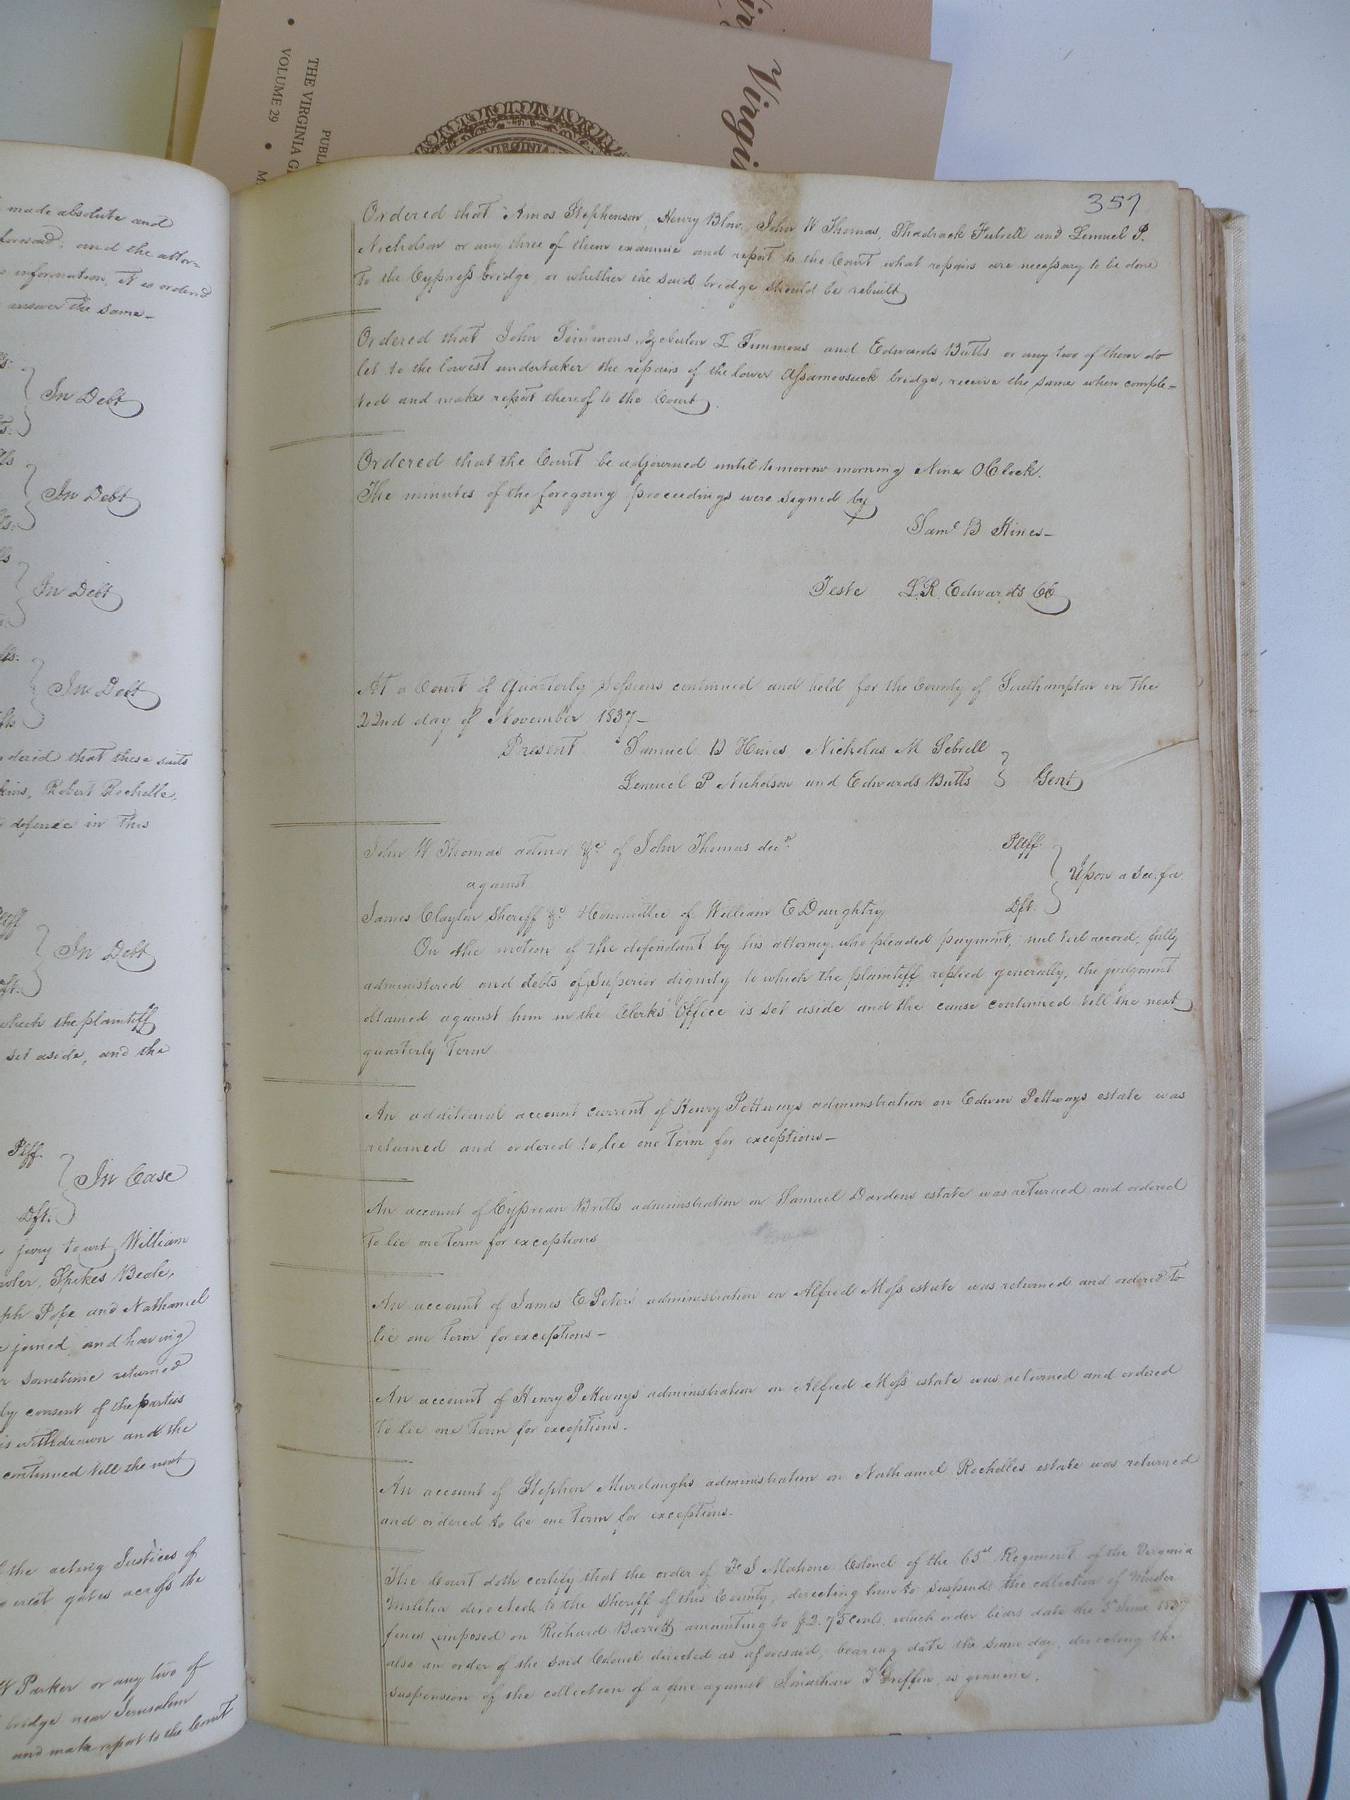 THE VIRGINIA G
VOLUME 29
PUBL
Virgi
VIRGINIA
made absolute and
foresaid; and the attor=
information, it is orderd
answer the same_
In Debt
In Debt
In Debt
In Debt
dered that these suits
kins, Robert Rochelle,
defence in this
Plff
In Debt
Dft.
which the plaintiff
set aside, and the
Plff.
In Case
Dft.
jury to wit; William
Spikes Beale,
Pope and Nathaniel
joined, and having
sometime returned
by consent of the parties
is withdrawn and the
continued till the next
the acting Justices of
erect gates across the
W Parker or any two of
bridge near Jerusalem
and make report to the Court
357
Ordered that Amos Stephenson, Henry Blow, John W Thomas, Shadrack Futrell and Lemuel P.
Nicholson or any three of them examine and report to the Court what repairs are necessary to be done
to the Cypress bridge, or whether the said bridge should be rebuilt
Ordered that John Simmons, L Simmons and Edwards Butts or any two of them do
let to the lowest undertaker the repairs of the lower Assamoosuck bridge, receive the same when comple=
ted and make report thereof to the Court.
Ordered that the Court be adjourned until tomorrow morning Nine OClock.
The minutes of the foregoing proceedings were signed by
Saml B Hines_
Teste L.R. Edwards CC
At a Court of Quarterly Sessions continued and held for the County of Southampton on the
22nd day of November 1837_
Present Samuel B Hines Nicholas M Sebrell
Lemuel P Nicholson and Edwards Butts } Gent
John W Thomas admor &c of John Thomas decd. Plff.
against } Upon a Sci. fa
James Clayton Sheriff &c Committee of William E Daughtry Dft.
On the motion of the defendant by his attorney, who pleaded payment, nul tiel record, fully
administered and debts of Superior dignity to which the plaintiff replied generally, the judgment
obtained against him in the Clerks Office is set aside and the cause continued till the next
quarterly Term
An additional account current of Henry Pettways administration on Edwin Pettways estate was
returned and ordered to lie one Term for exceptions_
An account of Cyprean Britts administration on Samuel Dardens estate was returned and ordered
to lie one Term for exceptions
An account of James E Peters' administration on Alfred Moss estate was returned and ordered to
lie one Term for exceptions_
An account of Henry Pettways administration on Alfred Moss estate was returned and ordered
to lie one Term for exceptions.
An account of Stephen Murdaughs administration on Nathaniel Rochelles estate was returned
and ordered to lie one Term for exceptions.
The Court doth certify that the order of Mahone Colonel of the 65th Regiment of the Virginia
Militia directed to the Sheriff of this County, directing him to suspend the collection of Muster
fines imposed on Richard Barrett amounting to $2.75 cents, which order bears date the 5th June 1837
also an order of the said Colonel directed as aforesaid, bearing date the same day, directing the
suspension of the collection of a fine against Jonathan T Griffin is genuine.